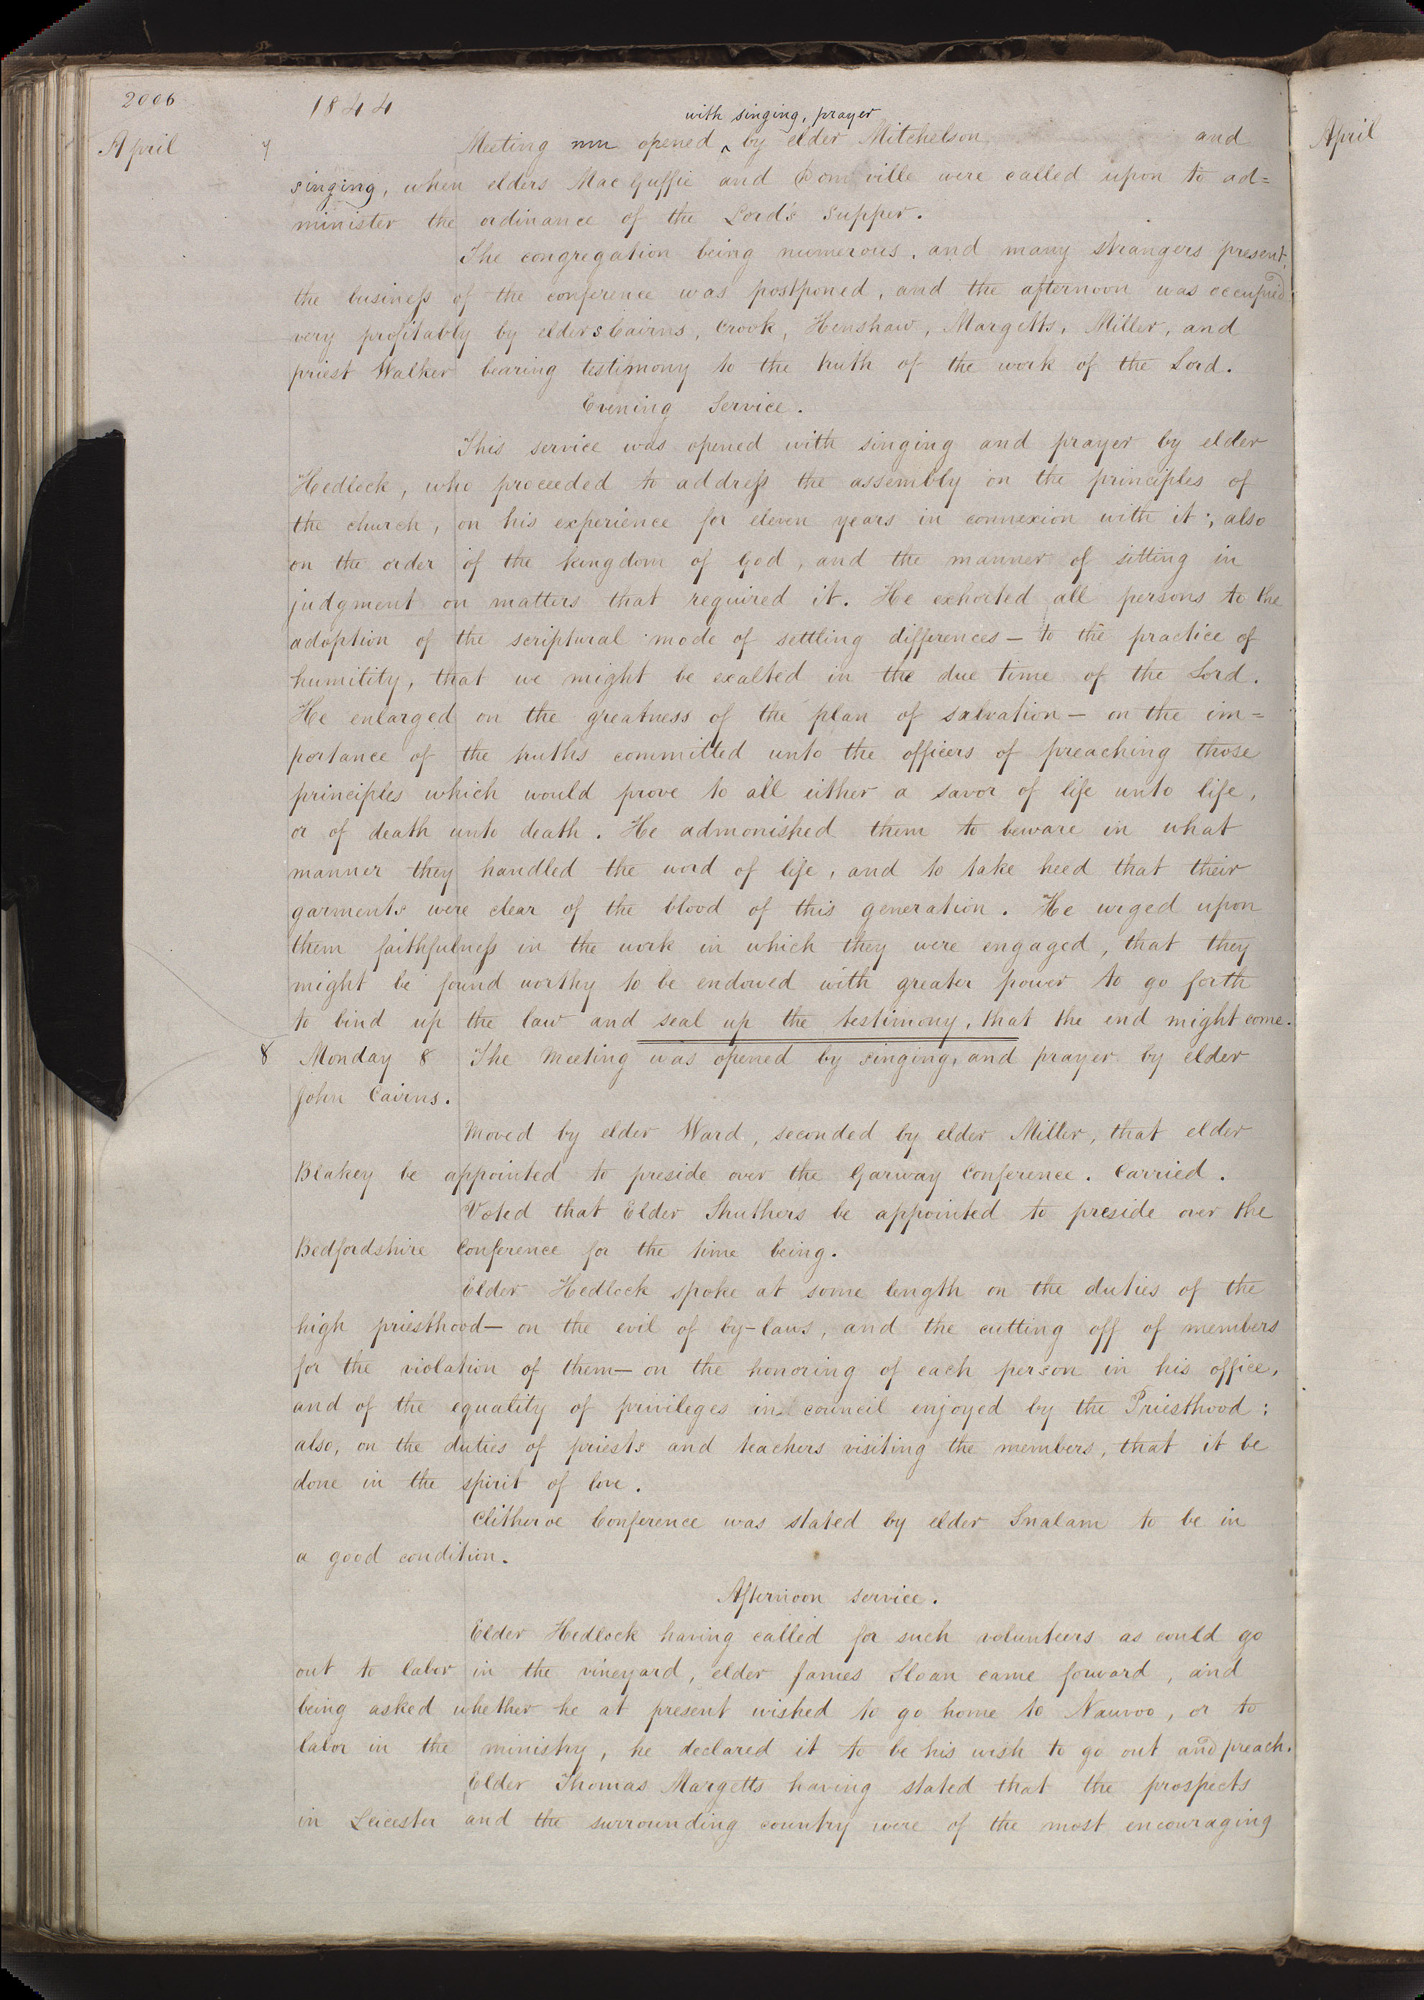 2006
1844
April
7
with singing, prayer
Meeting opened ^ by elder Mitchelson and
singing, when elders MacGuffie and Domville were called upon to ad=
minister the ordinance of the Lord's Supper.
The congregation being numerous, and many strangers present,
the business of the conference was postponed, and the afternoon was occupied
very profitably by elders Cairns, Crook, Henshaw, Margetts, Miller, and
priest Walker bearing testimony to the truth of the work of the Lord.
Evening Service.
This service was opened with singing and prayer by elder
Hedlock, who proceeded to address the assembly on the principles of
the church, on his experience for eleven years in connexion with it; also
on the order of the kingdom of God, and the manner of sitting in
judgment on matters that required it. He exhorted all persons to the
adoption of the scriptural mode of settling differences — to the practice of
humility, that we might be exalted in the due time of the Lord.
He enlarged on the greatness of the plan of salvation — on the im=
portance of the truths committed unto the officers of preaching those
principles which would prove to all either a savor of life unto life,
or of death unto death. He admonished them to beware in what
manner they handled the word of life, and to take heed that their
garments were clear of the blood of this generation. He urged upon
them faithfulness in the work in which they were engaged, that they
might be found worthy to be endowed with greater power to go forth
to bind up the law and seal up the testimony, that the end might come.
8 Monday 8 The meeting was opened by singing, and prayer by elder
John Cairns.
Moved by elder Ward, seconded by elder Miller, that elder
Blakey be appointed to preside over the Garway Conference. Carried.
Voted that Elder Struthers be appointed to preside over the
Bedfordshire Conference for the time being.
Elder Hedlock spoke at some length on the duties of the
high priesthood — on the evil of by-laws, and the cutting off of members
for the violation of them — on the honoring of each person in his office,
and of the equality of privileges in council enjoyed by the Priesthood;
also, on the duties of priests and teachers visiting the members, that it be
done in the spirit of love.
Clitheroe Conference was stated by elder Snalam to be in
a good condition.
Afternoon service.
Elder Hedlock having called for such volunteers as could go
out to labor in the vineyard, elder James Sloan came forward, and
being asked whether he at present wished to go home to Nauvoo, or to
labor in the ministry, he declared it to be his wish to go out and preach.
Elder Thomas Margetts having stated that the prospects
in Leicester and the surrounding country were of the most encouraging
April